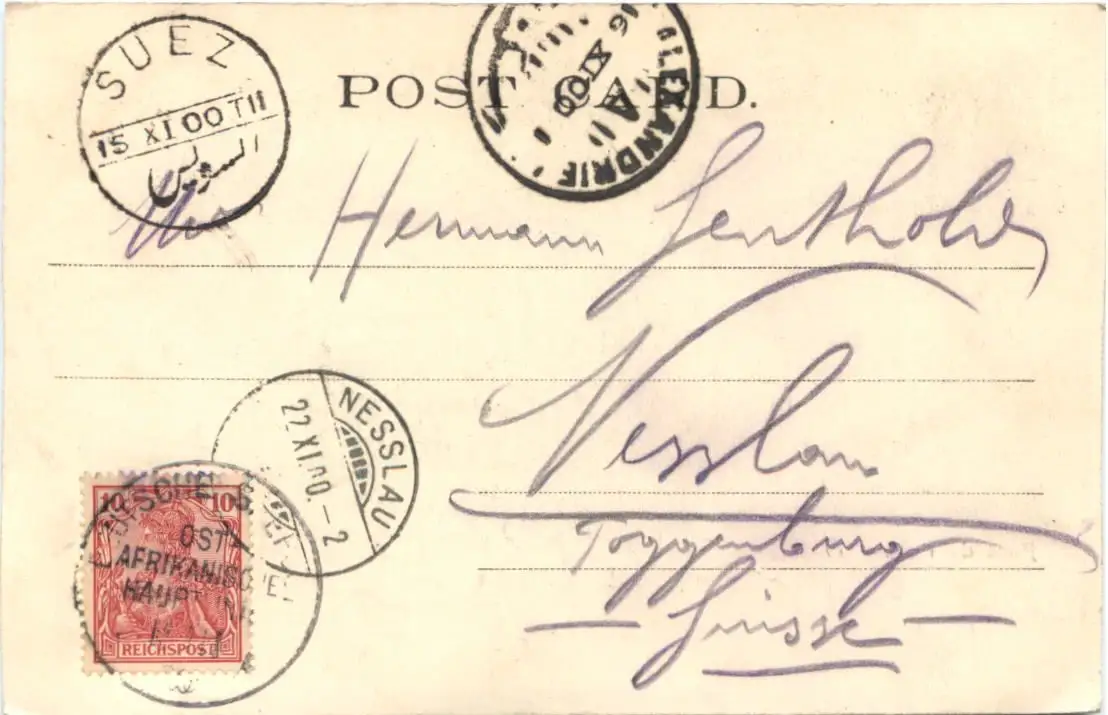 SUEZ
15 XI 00 T II
السويس
POST CARD.
ALEXANDRIE
16 XI 00
A
Hermann
NESSLAU
22.XI.00.-2
Nesslau
Toggenburg
— Suisse —
10 10
DEUTSCHE
OST
AFRIKANISCHE
HAUPT
REICHSPOST